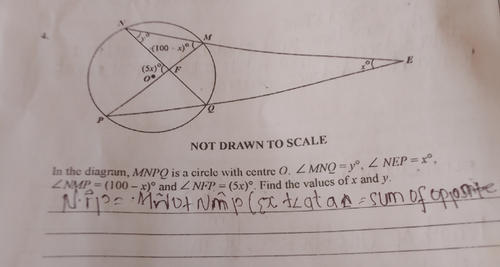 4.
N
M
y°
(100 - x)°
(5x)°
F
O
x°
E
P
Q
NOT DRAWN TO SCALE
In the diagram, MNPQ is a circle with centre O. ∠MNQ = y°, ∠ NEP = x°,
∠NMP = (100 – x)° and ∠NFP = (5x)°. Find the values of x and y.
= MN̂Q + NM̂P (Ext ∠ of a Δ = sum of opposite